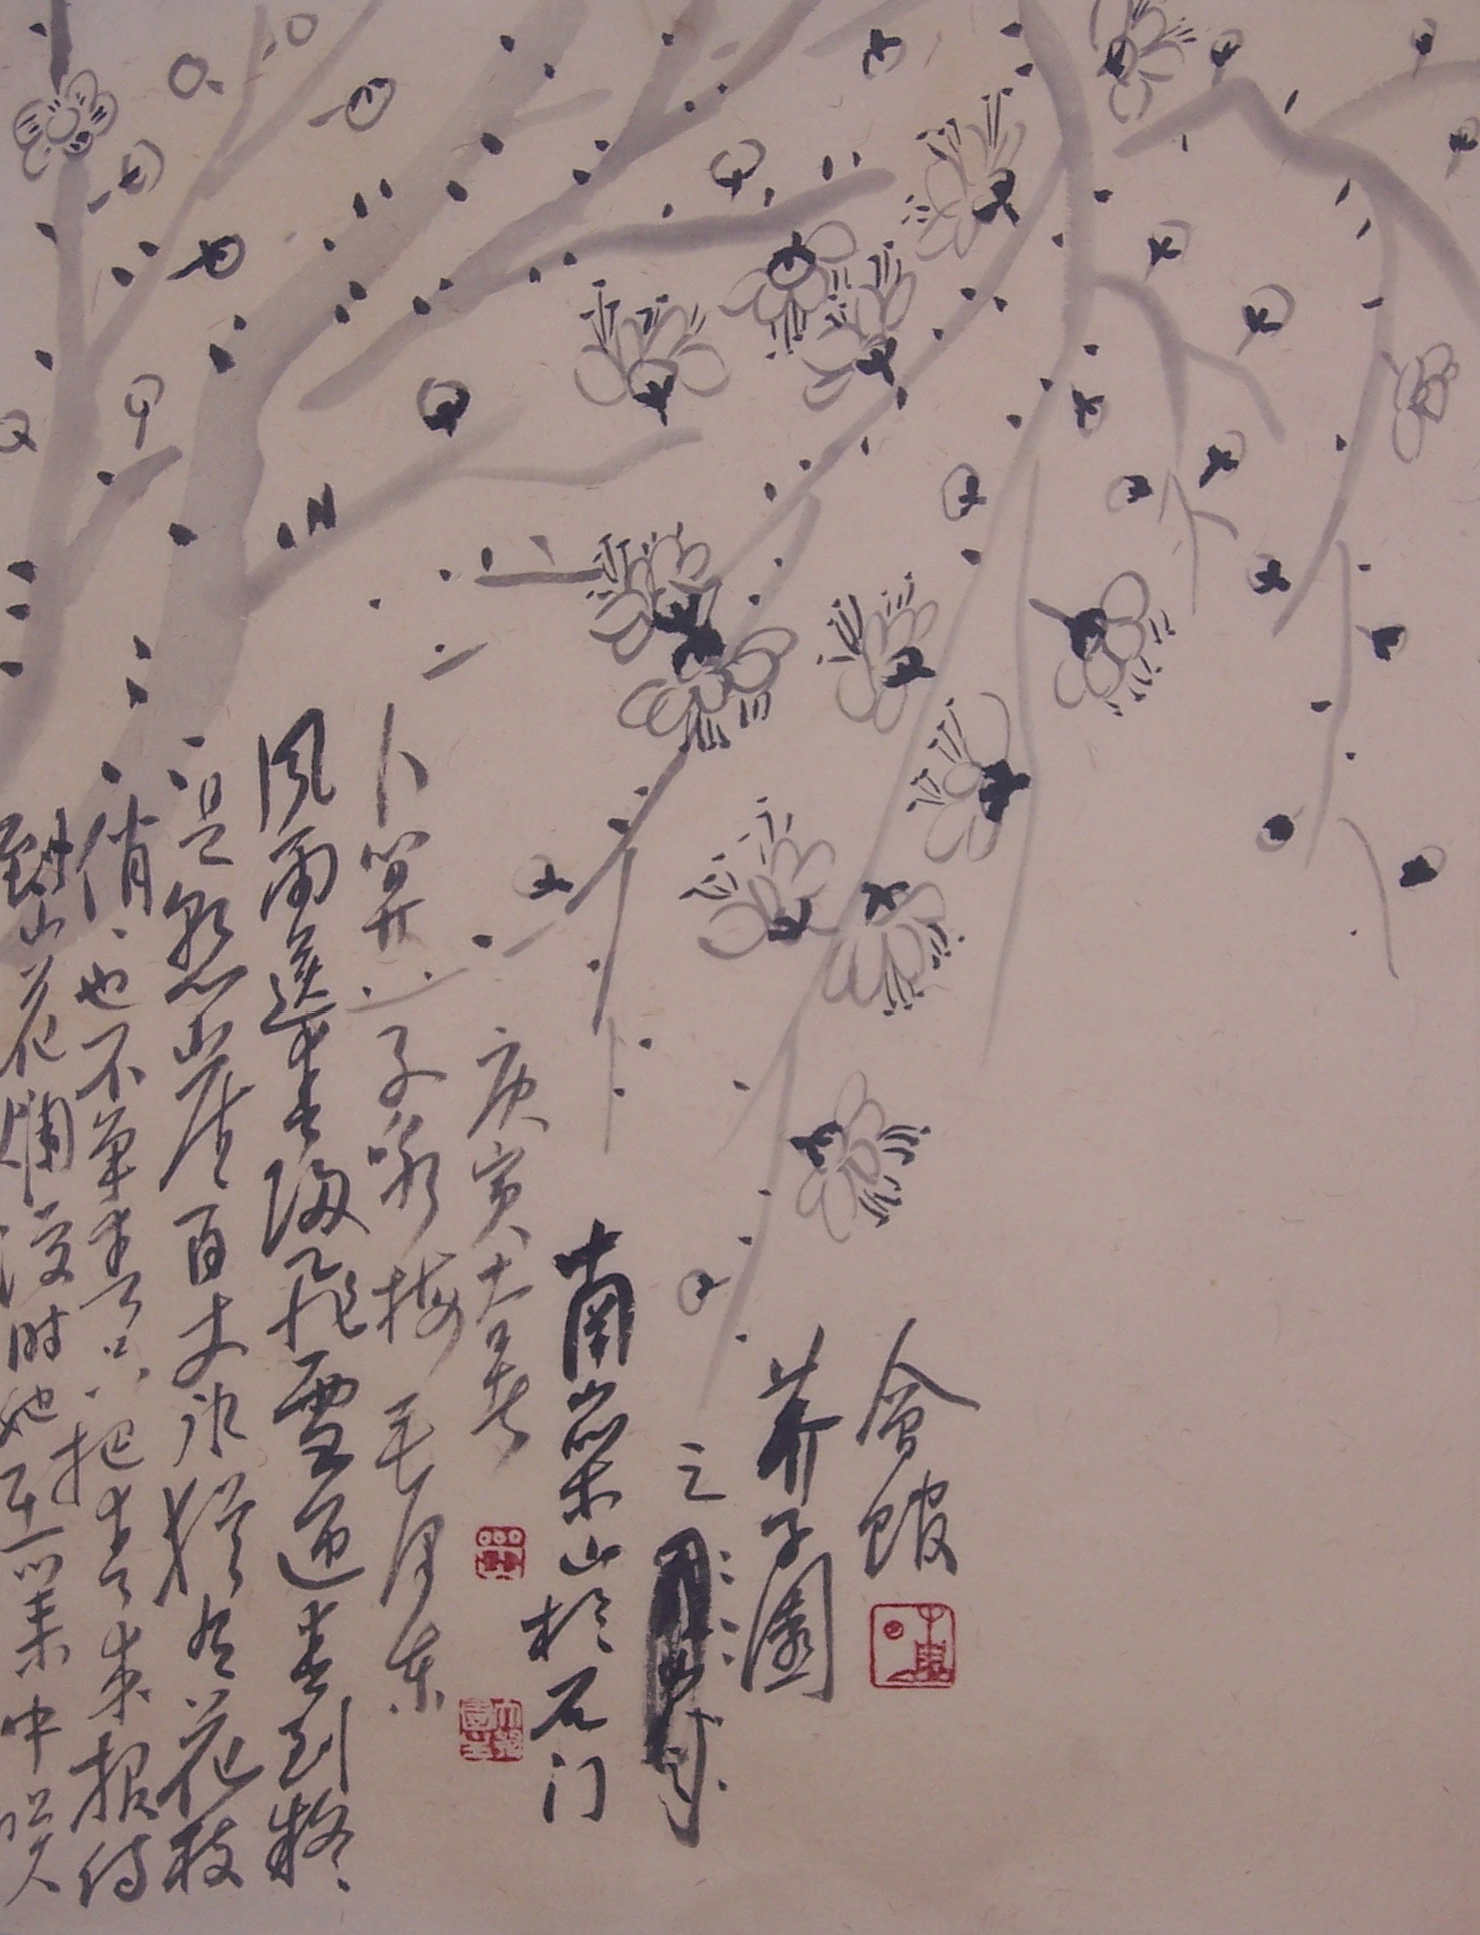 卜算子咏梅 毛泽东
风雨送春归飞雪迎春到
已是悬崖百丈冰犹有花枝
俏也不争春只把春来报待
到山花烂漫时她在丛中笑
庚寅大暑
山於石门
之
芥子园
会馆